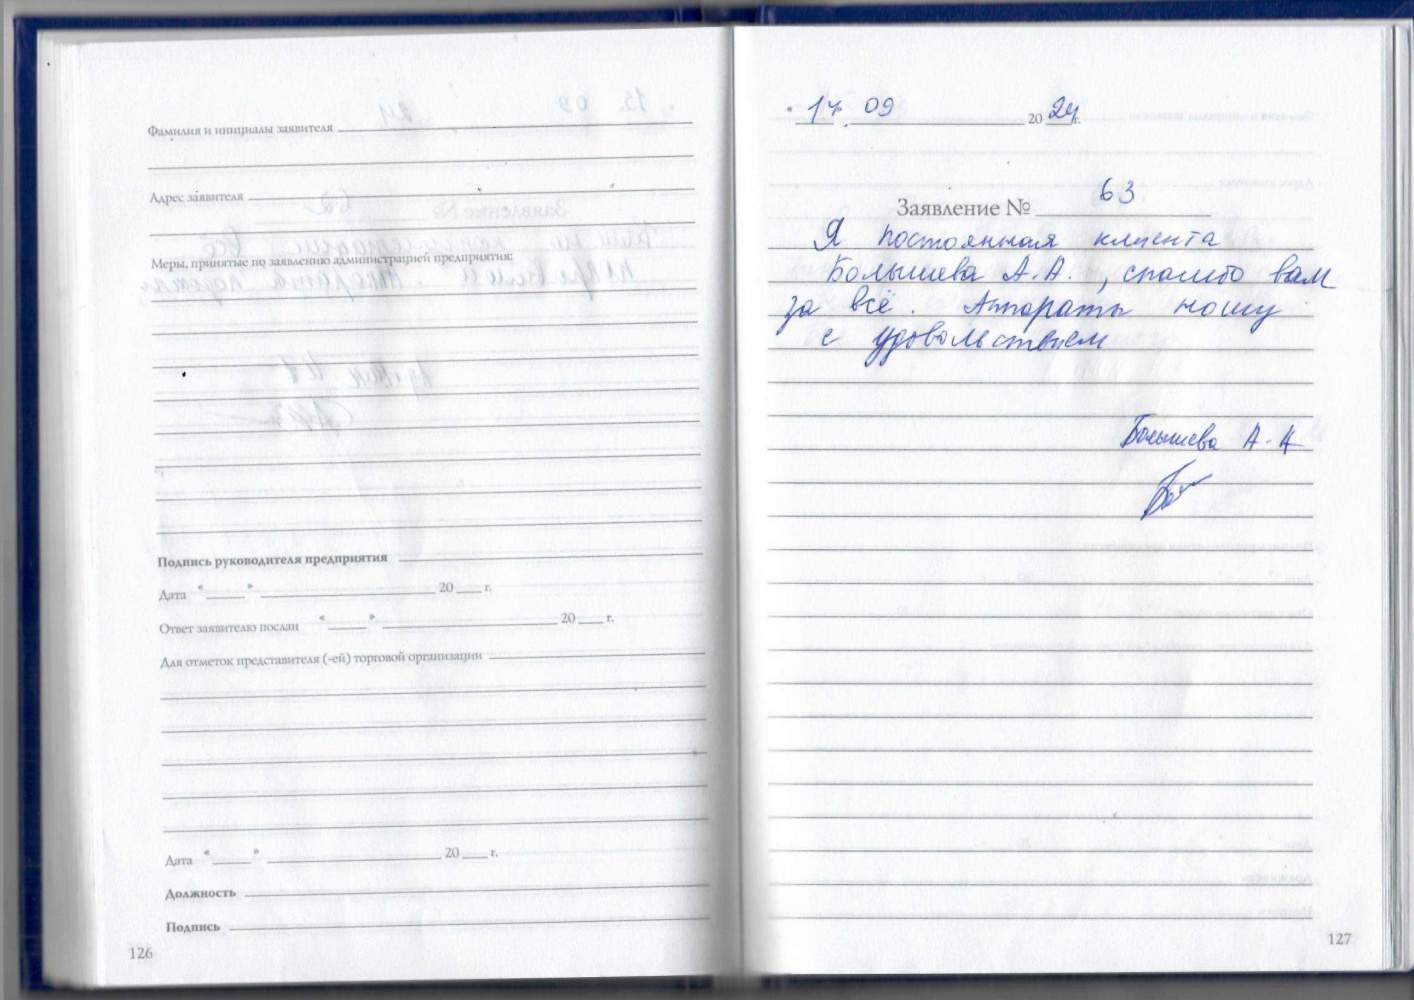 Фамилия и инициалы заявителя
Адрес заявителя
Меры, принятые по заявлению администрацией предприятия:
Подпись руководителя предприятия
Дата "____" ____ 20 ___ г.
Ответ заявителю послан "____" ____ 20 ___ г.
Для отметок представителя (-ей) торговой организации
Дата "____" ____ 20 ___ г.
Должность
Подпись
126
" 17. 09 20 24 г.
Заявление № 63
Я постоянная клиента
Болышева А.А., спасибо вам
за всё. Аппараты ношу
с удовольствием
Болышева А.А
127